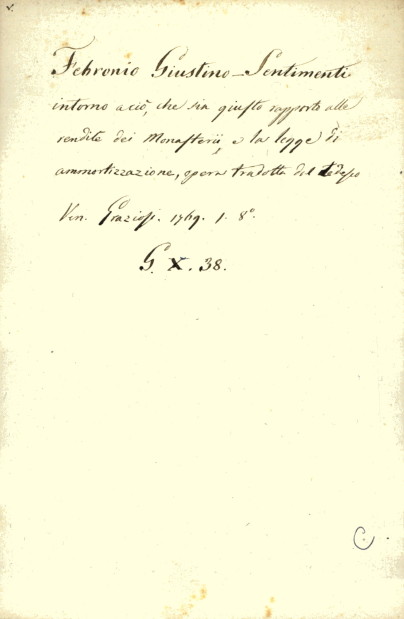 v.
Febronio Giustino - Sentimenti
intorno a ciò, che sia giusto rapporto alle
rendite dei Monasterii, e la legge di
ammortizzazione, opera tradotta dal tedesco
Ven. Graziosi. 1769. 1. 8.°
G. X. 38.
C.